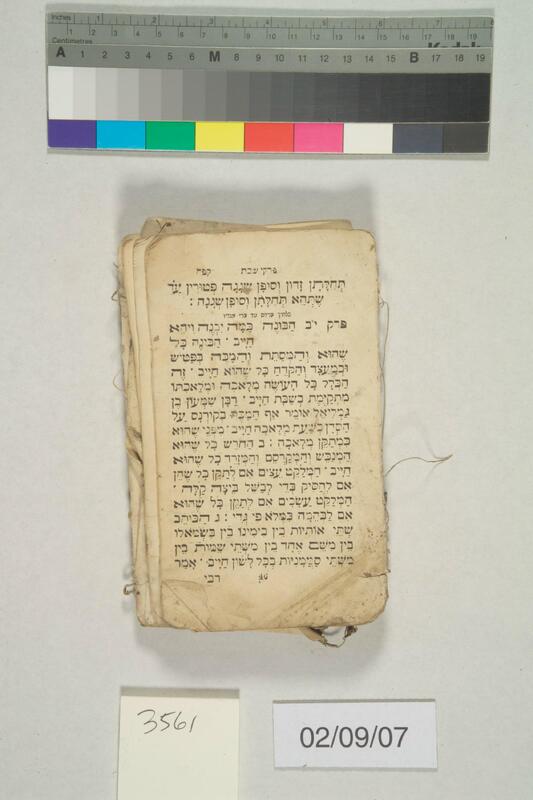 Inches 1 2 3 4 5 6 7 8
Centimetres 1 2 3 4 5 6 7 8 9 10 11 12 13 14 15 16 17 18 19
Kodak
A 1 2 3 4 5 6 M 8 9 10 11 12 13 14 15 B 17 18 19
פרקי שבת קפה
תְּחִלָּתָן זָדוֹן וְסוֹפָן שְׁגָגָה פְּטוּרִין עַד
שֶׁתְּהֵא תְּחִלָּתָן וְסוֹפָן שְׁגָגָה :
פרק י״ב הַבּוֹנֶה כַּמָּה יִבְנֶה וִיהֵא
חַיָּיב · הַבּוֹנֶה כָּל
שֶׁהוּא וְהַמְסַתֵּת וְהַמַּכֶּה בְּפַטִּישׁ
וּבְמַעֲצָד וְהַקּוֹדֵחַ כָּל שֶׁהוּא חַיָּיב · זֶה
הַכְּלָל כָּל הָעוֹשֶׂה מְלָאכָה וּמְלַאכְתּוֹ
מִתְקַיֶּימֶת בַּשַּׁבָּת חַיָּיב · רַבָּן שִׁמְעוֹן בֶּן
גַּמְלִיאֵל אוֹמֵר אַף הַמַּכֶּה בְקוּרְנָס עַל
הַסַּדָּן בִּשְׁעַת מְלָאכָה חַיָּיב · מִפְּנֵי שֶׁהוּא
כִּמְתַקֵּן מְלָאכָה : ב הַחוֹרֵשׁ כָּל שֶׁהוּא
הַמְנַכֵּשׁ וְהַמְקַרְסֵם וְהַמְזָרֵד כָּל שֶׁהוּא
חַיָּיב · הַמְלַקֵּט עֵצִים אִם לְתַקֵּן כָּל שֶׁהֵן
אִם לְהֶסֵּיק כְּדֵי לְבַשֵּׁל בֵּיצָה קַלָּה ·
הַמְלַקֵּט עֲשָׂבִים אִם לְתַקֵּן כָּל שֶׁהוּא
אִם לִבְהֵמָה כִּמְלֹא פִי גְדִי : ג הַכּוֹתֵב
שְׁתֵּי אוֹתִיּוֹת בֵּין בִּימִינוֹ בֵּין בִּשְׂמֹאלוֹ
בֵּין מִשֵּׁם אֶחָד בֵּין מִשְׁתֵּי שֵׁמוֹת בֵּין
מִשְׁתֵּי סַמְמָנִיּוֹת בְּכָל לָשׁוֹן חַיָּיב · אָמַר
רבי
3561
02/09/07